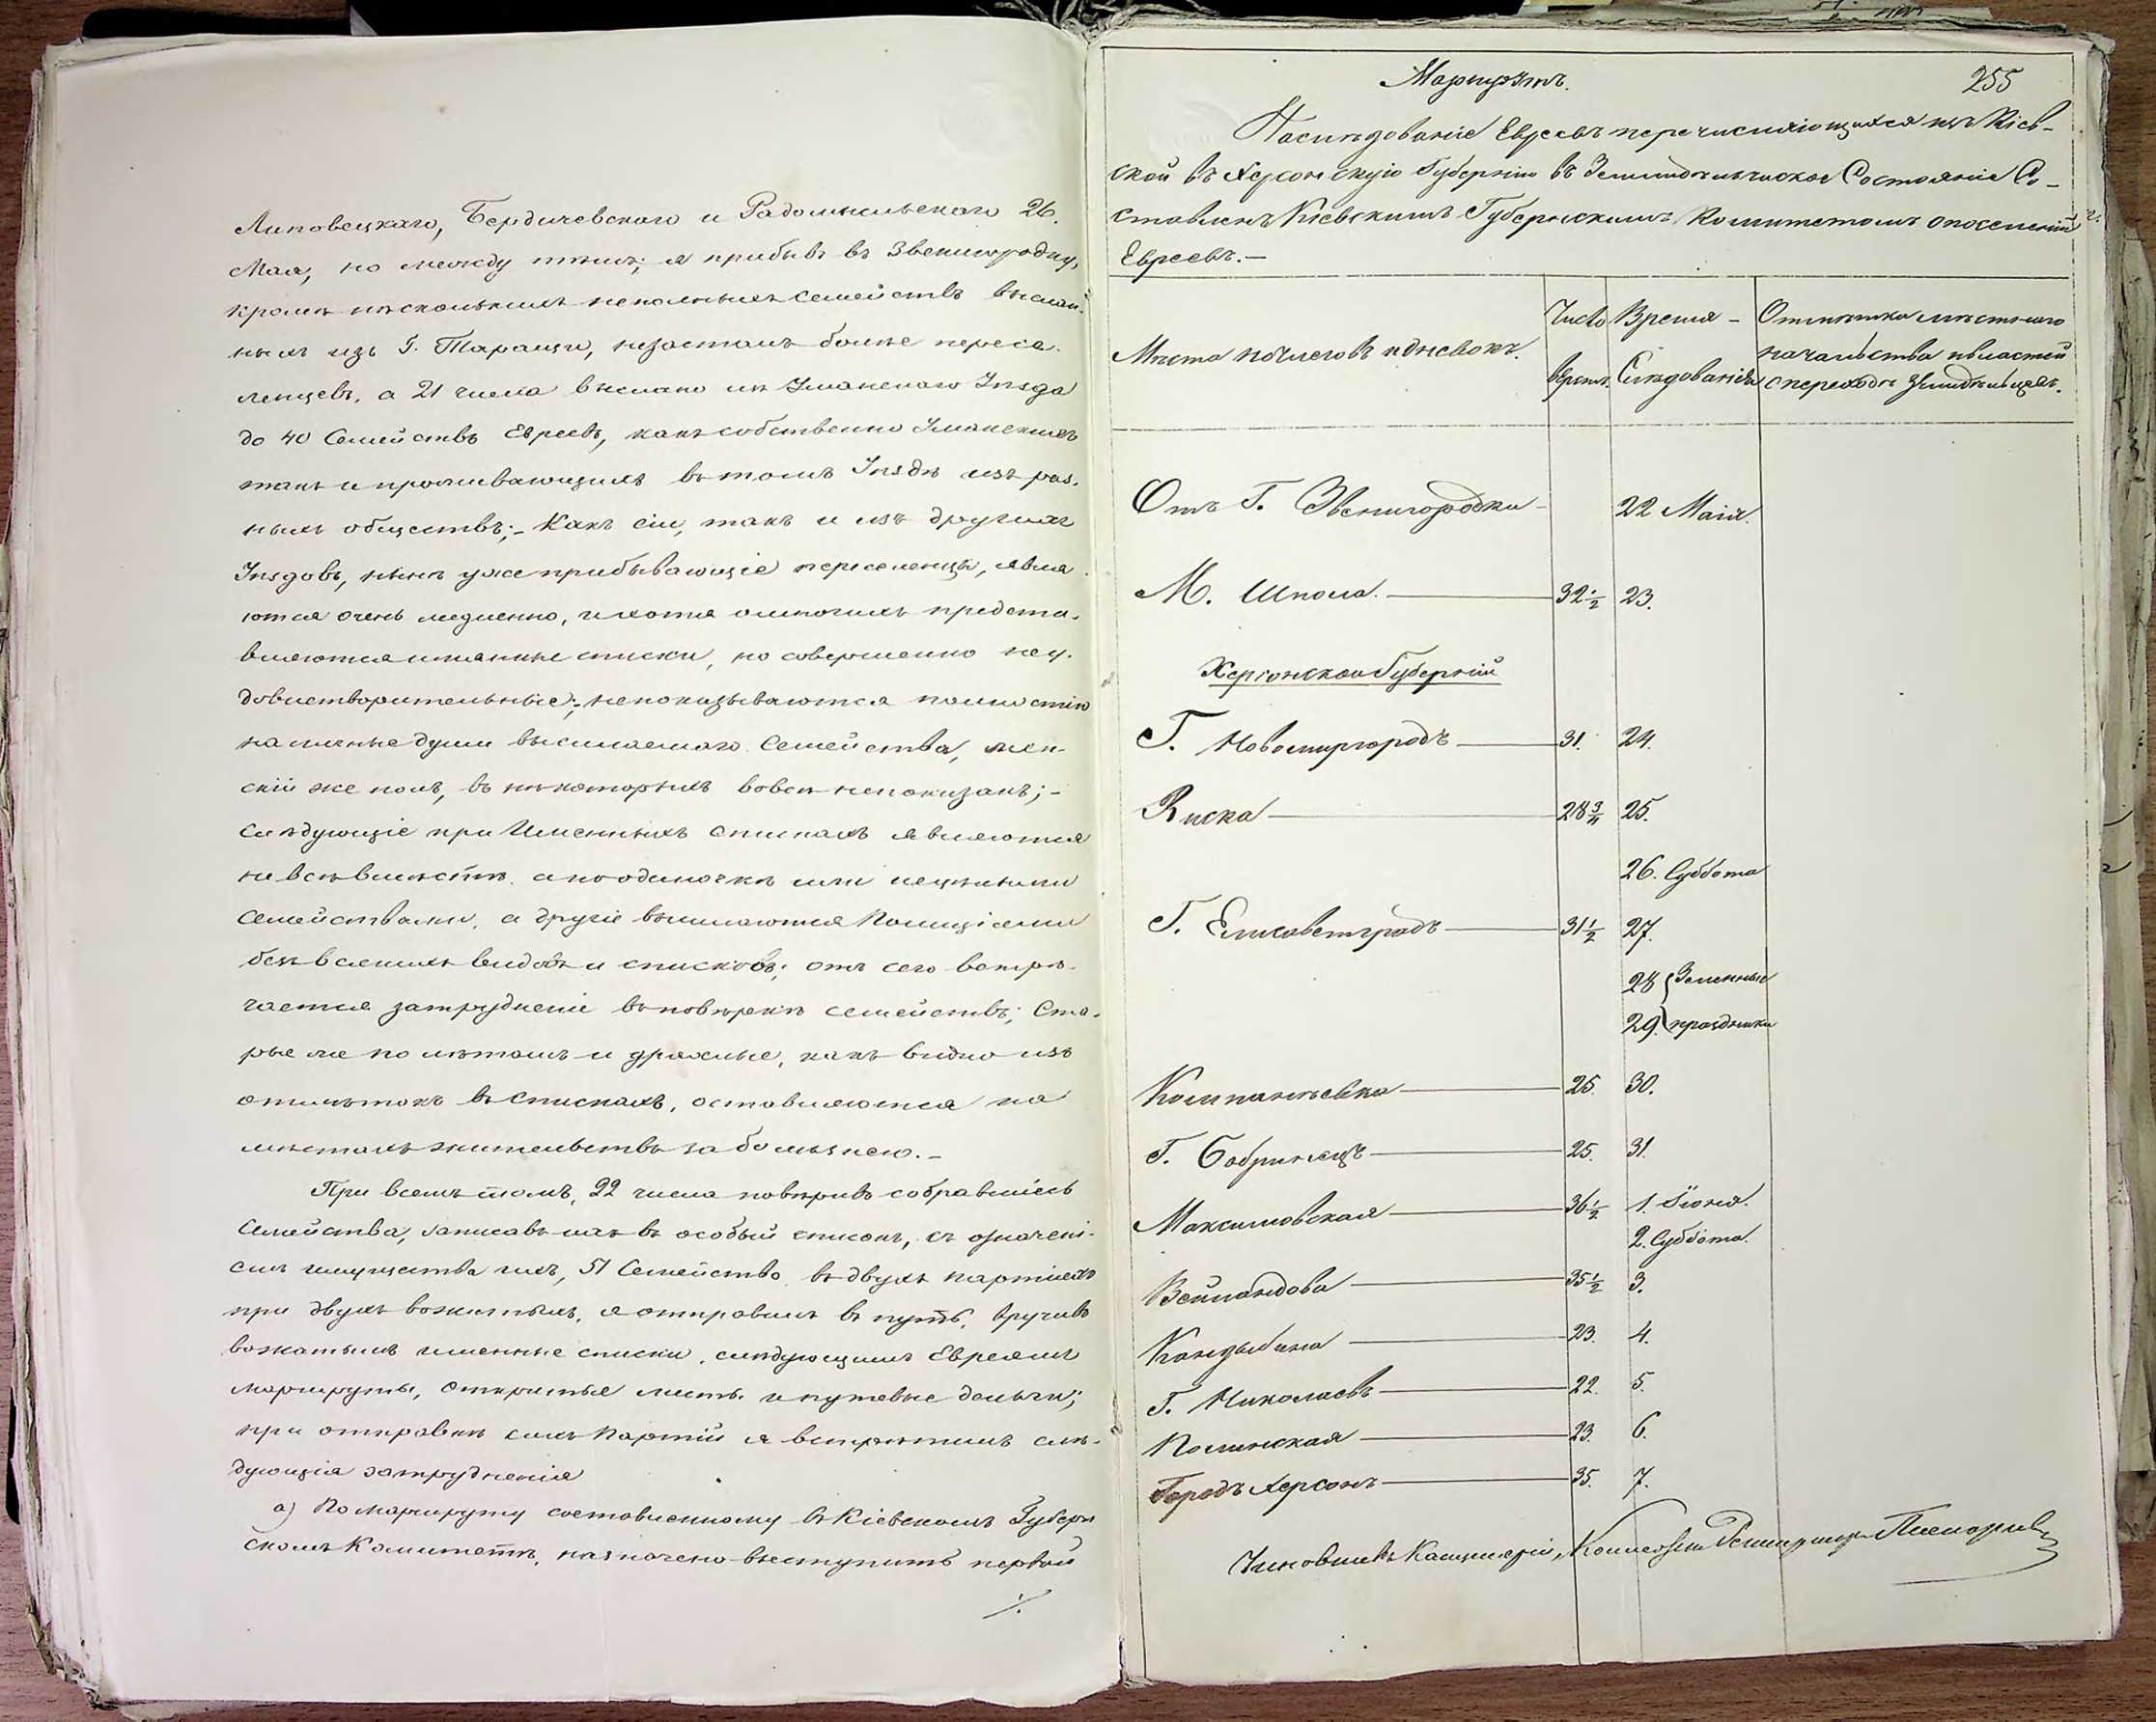 Липовецкаго, Бердичевскаго и Радомысльскаго 26.
Мая, но между тѣмъ; я прибывъ въ Звенигородку,
кромѣ нѣсколькихъ неполныхъ семействъ выслан-
ныхъ изъ Г. Таращи, незасталъ болѣе пересе-
ленцевъ, а 21 числа выслано изъ Уманскаго Уѣзда
до 40 Семействъ Евреевъ, какъ собственно Уманскихъ
такъ и проживающихъ въ томъ Уѣздѣ изъ раз-
ныхъ обществъ;- Какъ сіи, такъ и изъ другихъ
Уѣздовъ, нынѣ уже прибывающіе переселенцы, явля-
ются очень медленно, и хотя о многихъ предста-
вляются имянные списки, но совершенно неу-
довлетворительные; непоказываются полностію
наличные души высылаемаго Семейства, жен-
скій же полъ, въ нѣкоторыхъ вовсе непоказанъ;-
Слѣдующіе при Именныхъ спискахъ являются
не всѣ вмѣстѣ, а по одиночкѣ или нецѣлыми
Семействами, а другіе высылаются Полиціями
безъ всякихъ видовъ и списковъ; отъ сего встрѣ-
чается затрудненіе въ повѣркѣ семействъ; Ста-
рые же по лѣтамъ и дряхлые, какъ видно изъ
отмѣтокъ въ спискахъ, оставляются на
мѣстахъ жительствъ за болѣзнею.-
При всемъ томъ, 22 числа повѣривъ собравшіесь
Семейства, записавъ ихъ въ особый списокъ, съ означені-
емъ имущества ихъ, 51 Семейство въ двухъ партіяхъ
при двухъ вожатыхъ, я отправилъ въ путь, вручивъ
вожатымъ именные списки, слѣдующимъ Евреямъ
маршруты, открытые листы и путевые деньги;
при отправкѣ сихъ партій я встрѣтилъ слѣ-
дующія затрудненія
а) По маршруту составленному въ Кіевскомъ Губерн
скомъ Комитетѣ, назначено выступить первой
./.
Маршрутъ. 255
На слѣдованіе Евреевъ перечисляющихся изъ Кіев-
ской въ Херсонскую Губернію въ Земледѣльческое Состояніе Со-
ставленъ Кіевскимъ Губернскимъ Комитетомъ о поселеніи
Евреевъ.-
Мѣста ночлеговъ и дневокъ. Число верстъ. Время Слѣдованія Отмѣтка мѣстнаго начальства и властей о переходѣ земледѣльцевъ.
Отъ Г. Звенигородки 22 Маія.
М. Шпола. 32½ 23.
Херсонской Губерніи
Г. Новомиргородъ 31. 24.
Виска 28¾ 25.
26. Суббота
Г. Елисаветградъ 31½ 27.
28 Зеленные
29. праздники
Компанѣевка 25. 30.
Г. Бобринецъ 25. 31.
Максимовская 36½ 1. Іюня.
2. Суббота.
Веймандова 35½ 3.
Кандыбина 23. 4.
Г. Николаевъ 22. 5.
Копинская 23. 6.
Городъ Херсонъ 35. 7.
Чиновникъ Канцеляріи,